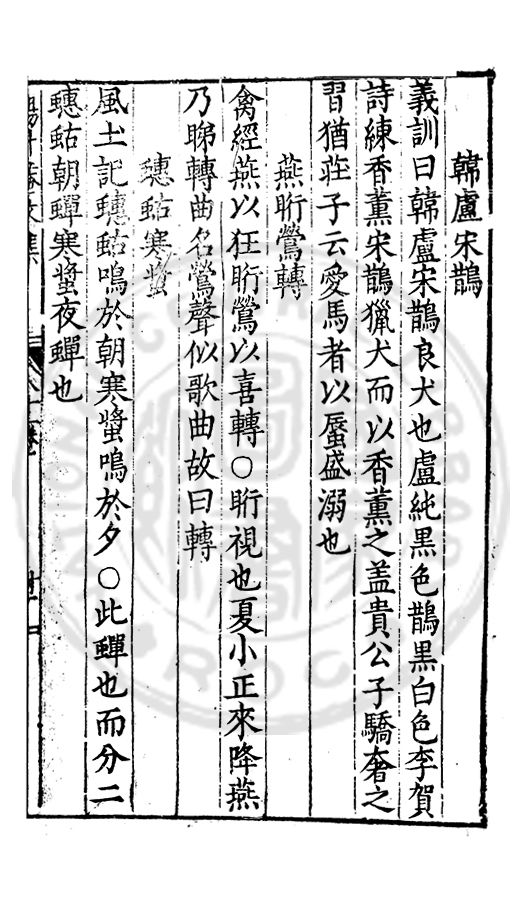 韓盧宋鵲
義訓曰韓盧宋鵲良犬也盧純黑色鵲黑白色李賀
詩練香薰宋鵲獵犬而以香薰之盖貴公子驕奢之
習猶莊子云愛馬者以蜃盛溺也
燕䀪鶯轉
禽經燕以狂䀪鶯以喜轉○䀪視也夏小正來降燕
乃睇轉曲名鶯聲似歌曲故曰轉
蟪蛄寒螿
風土記蟪蛄鳴於朝寒螿鳴於夕○此蟬也而分二
蟪蛄朝蟬寒螿夜蟬也